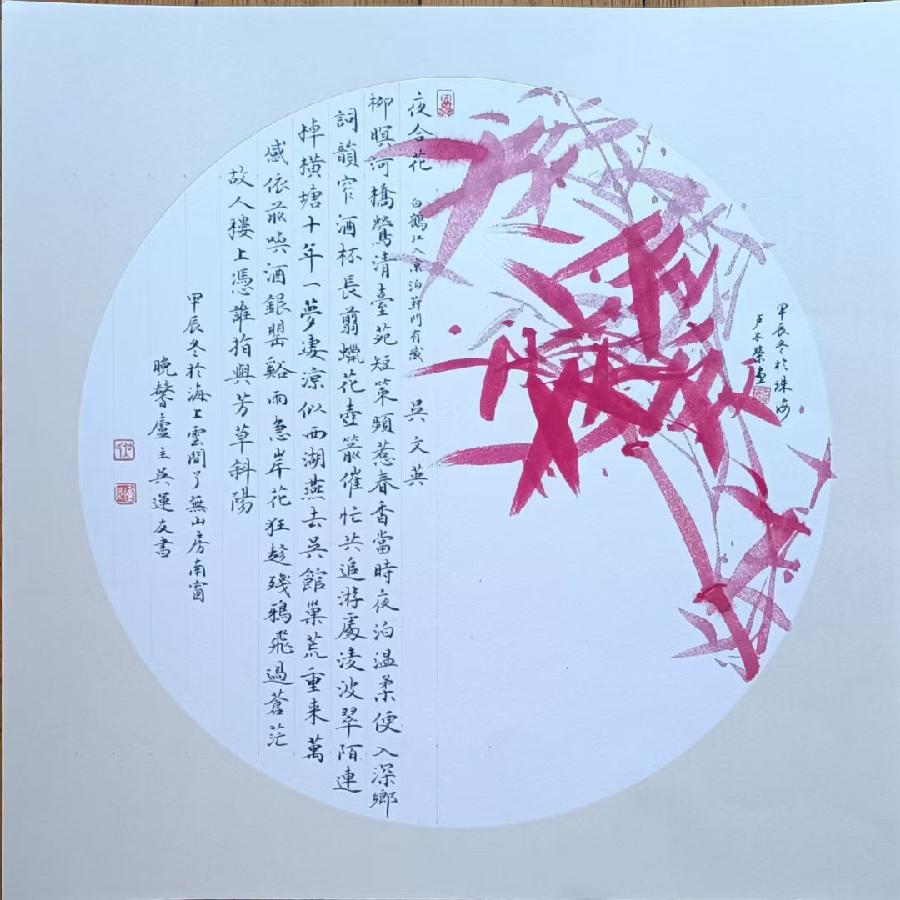 夜合花 白鶴江入京泊葑門有感 吳文英
柳暝河橋鶯清臺苑短策頻惹春香當時夜泊温柔便入深鄉
詞韻窄酒杯長翦蠟花壺箭催忙共追游處凌波翠陌連
棹橫塘十年一夢凄凉似西湖燕去吳館巢荒重来萬
感依前喚酒銀罌谿雨急岸花狂趁殘鴉飛過蒼茫
故人樓上憑誰指與芳草斜陽
甲辰冬於海上雲間了無山房南窗
晚馨廬主吳運友書
甲辰冬於珠海
卢木榮画